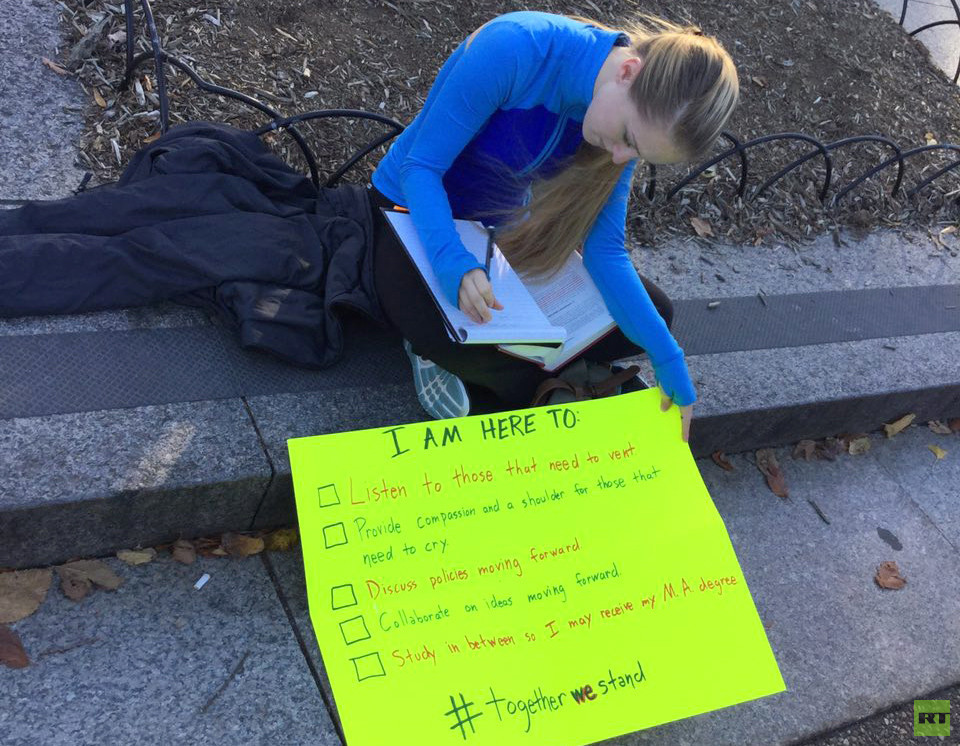 I AM HERE TO:
Listen to those that need to vent
Provide compassion and a shoulder for those that
need to cry.
Discuss policies moving forward
Collaborate on ideas moving forward.
Study in between so I may receive my M.A. degree
#togetherwestand
RT